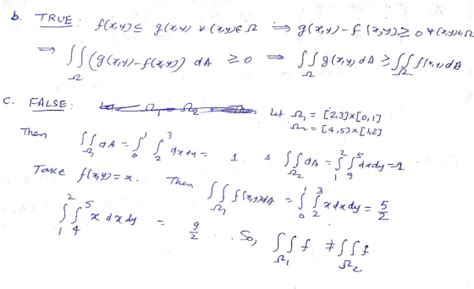 b. TRUE: f(x,y) ≤ g(x,y) ∀ (x,y) ∈ Ω ⟹ g(x,y) - f(x,y) ≥ 0 ∀ (x,y) in Ω
⟹ ∬_Ω (g(x,y) - f(x,y)) dA ≥ 0 ⟹ ∬_Ω g(x,y) dA ≥ ∬_Ω f(x,y) dA
C. FALSE: Let Ω₁ = [2,3]×[0,1]
Ω₂ = [4,5]×[1,2]
Then ∬_Ω₁ dA = ∫_0^1 ∫_2^3 dx dy = 1 & ∬_Ω₂ dA = ∫_1^2 ∫_4^5 dx dy = 1
Take f(x,y) = x. Then ∬_Ω₁ f(x,y) dA = ∫_0^1 ∫_2^3 x dx dy = 5/2
∫_1^2 ∫_4^5 x dx dy = 9/2. So, ∬_Ω₁ f ≠ ∬_Ω₂ f